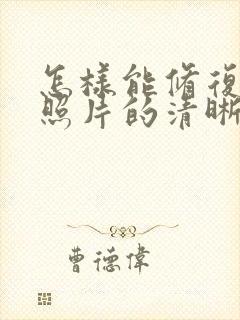 怎樣能脩復
照片的清晰
曹德偉